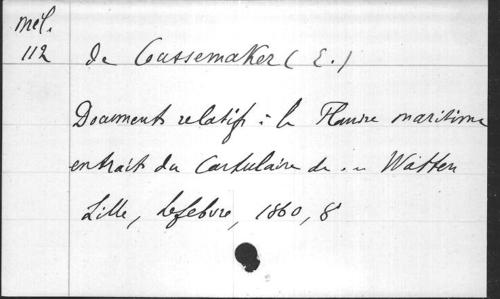 mél.
112
de Coussemaker (E.)
Documents relatifs à la Flandre maritime
extraits du Cartulaire de .. Watten
Lille, Lefebvre, 1860, 8°